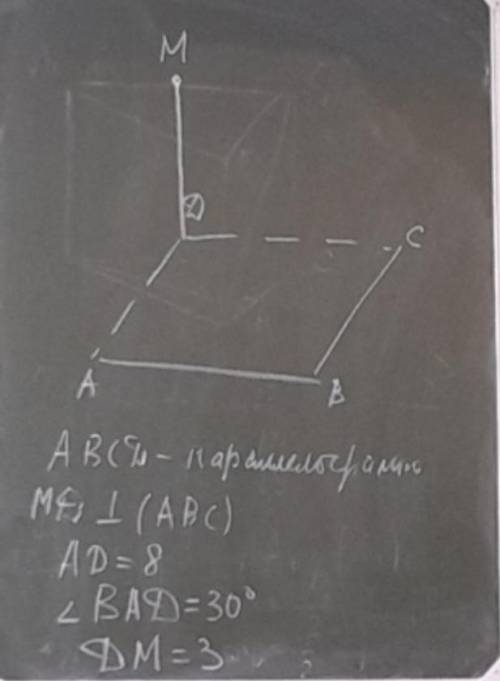 M
D
C
A
B
ABCD - параллелограмм
MD ⊥ (ABC)
AD = 8
∠ BAD = 30°
DM = 3